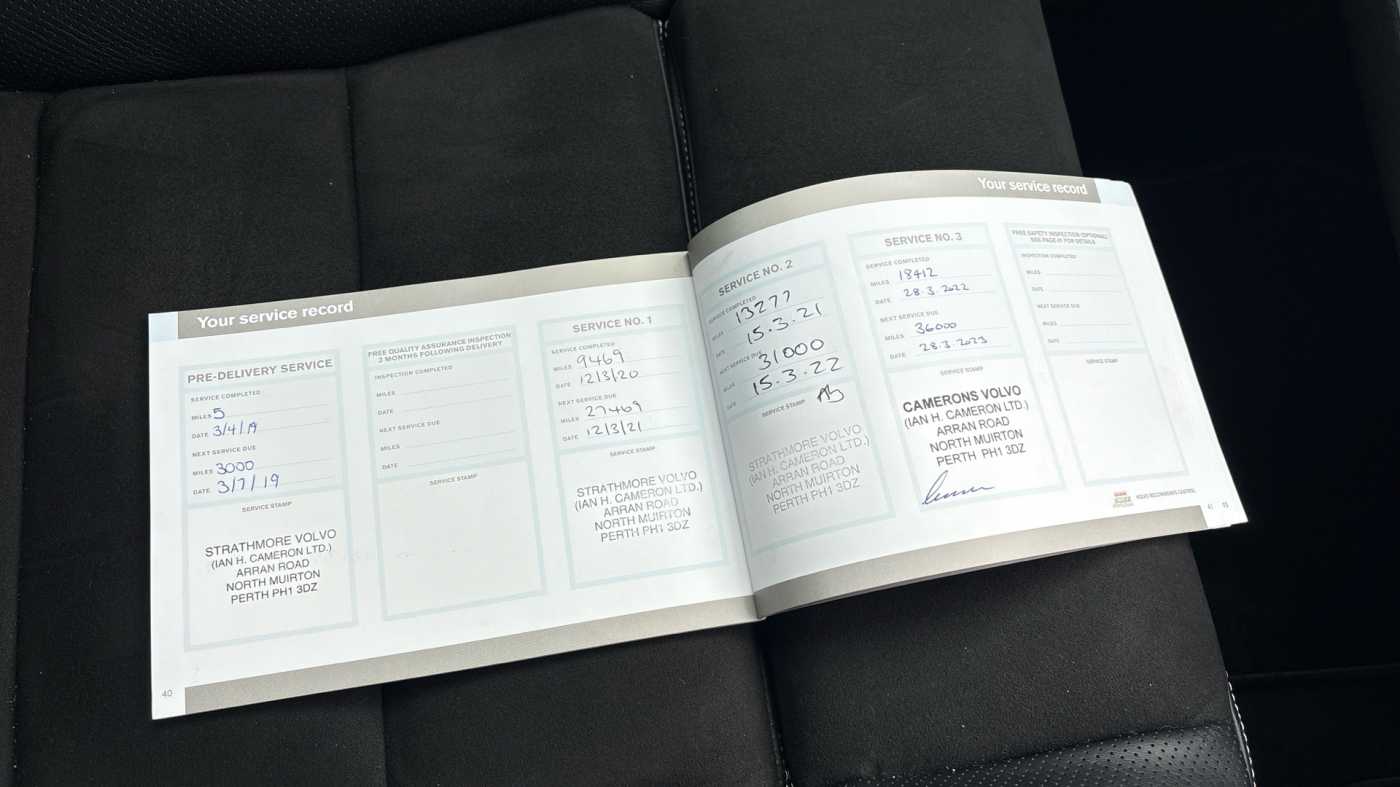 Your service record
PRE-DELIVERY SERVICE
SERVICE COMPLETED
MILES 5
DATE 3/4/19
NEXT SERVICE DUE
MILES 3000
DATE 3/7/19
SERVICE STAMP
STRATHMORE VOLVO
(IAN H. CAMERON LTD.)
ARRAN ROAD
NORTH MUIRTON
PERTH PH1 3DZ
FREE QUALITY ASSURANCE INSPECTION
3 MONTHS FOLLOWING DELIVERY
INSPECTION COMPLETED
MILES
DATE
NEXT SERVICE DUE
MILES
DATE
SERVICE STAMP
SERVICE NO. 1
SERVICE COMPLETED
MILES 9469
DATE 12/3/20
NEXT SERVICE DUE
MILES 27469
DATE 12/3/21
SERVICE STAMP
STRATHMORE VOLVO
(IAN H. CAMERON LTD.)
ARRAN ROAD
NORTH MUIRTON
PERTH PH1 3DZ
40
Your service record
SERVICE NO. 2
SERVICE COMPLETED
MILES 13277
DATE 15.3.21
NEXT SERVICE DUE
MILES 31000
DATE 15.3.22
SERVICE STAMP
STRATHMORE VOLVO
(IAN H. CAMERON LTD.)
ARRAN ROAD
NORTH MUIRTON
PERTH PH1 3DZ
SERVICE NO. 3
SERVICE COMPLETED
MILES 18412
DATE 28.3.2022
NEXT SERVICE DUE
MILES 36000
DATE 28.3.2023
SERVICE STAMP
CAMERONS VOLVO
(IAN H. CAMERON LTD.)
ARRAN ROAD
NORTH MUIRTON
PERTH PH1 3DZ
FREE SAFETY INSPECTION (OPTIONAL)
SEE PAGE 41 FOR DETAILS
INSPECTION COMPLETED
MILES
DATE
NEXT SERVICE DUE
MILES
DATE
SERVICE STAMP
VOLVO RECOMMENDS CASTROL
41